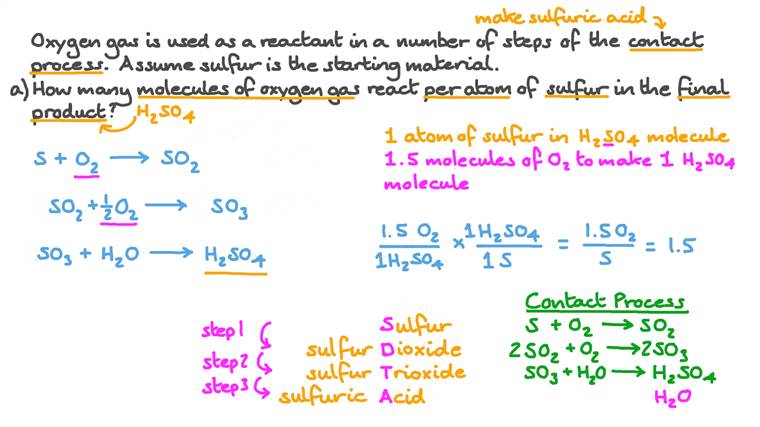 make sulfuric acid
Oxygen gas is used as a reactant in a number of steps of the contact
process. Assume sulfur is the starting material.
a) How many molecules of oxygen gas react per atom of sulfur in the final
product?
H₂SO₄
S + O₂ → SO₂
SO₂ + ½O₂ → SO₃
SO₃ + H₂O → H₂SO₄
1 atom of sulfur in H₂SO₄ molecule
1.5 molecules of O₂ to make 1 H₂SO₄
molecule
1.5 O₂ / 1H₂SO₄ × 1H₂SO₄ / 1S = 1.5O₂ / S = 1.5
step1
step2
step3
Sulfur
sulfur Dioxide
sulfur Trioxide
sulfuric Acid
Contact Process
S + O₂ → SO₂
2SO₂ + O₂ → 2SO₃
SO₃ + H₂O → H₂SO₄
H₂O